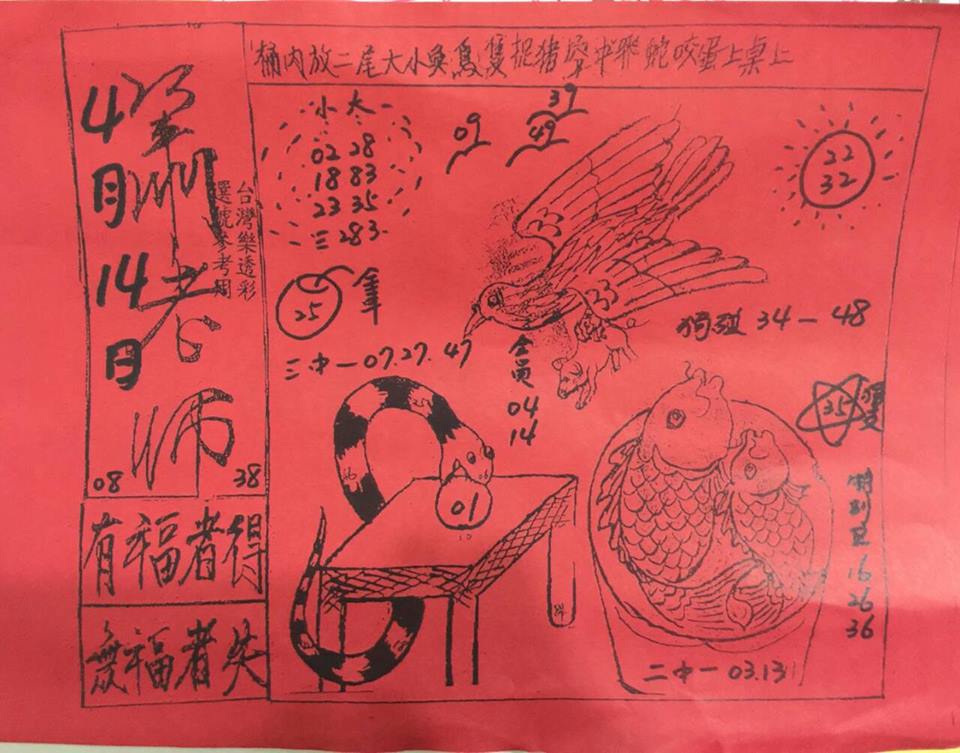 桶内放二尾大小魚鳥隻捉猪空中飛蛇咬蛋上桌上
4月14日
老师
台灣樂透彩
選號參考用
08 38
有福者得
無福者失
小 大
02 28
18 83
23 35
三 283
09
39
49
22
32
25
三中一07.27.47
會員
04
14
34-48
01
35 雙
特别豆
16
26
36
二中一 03.13